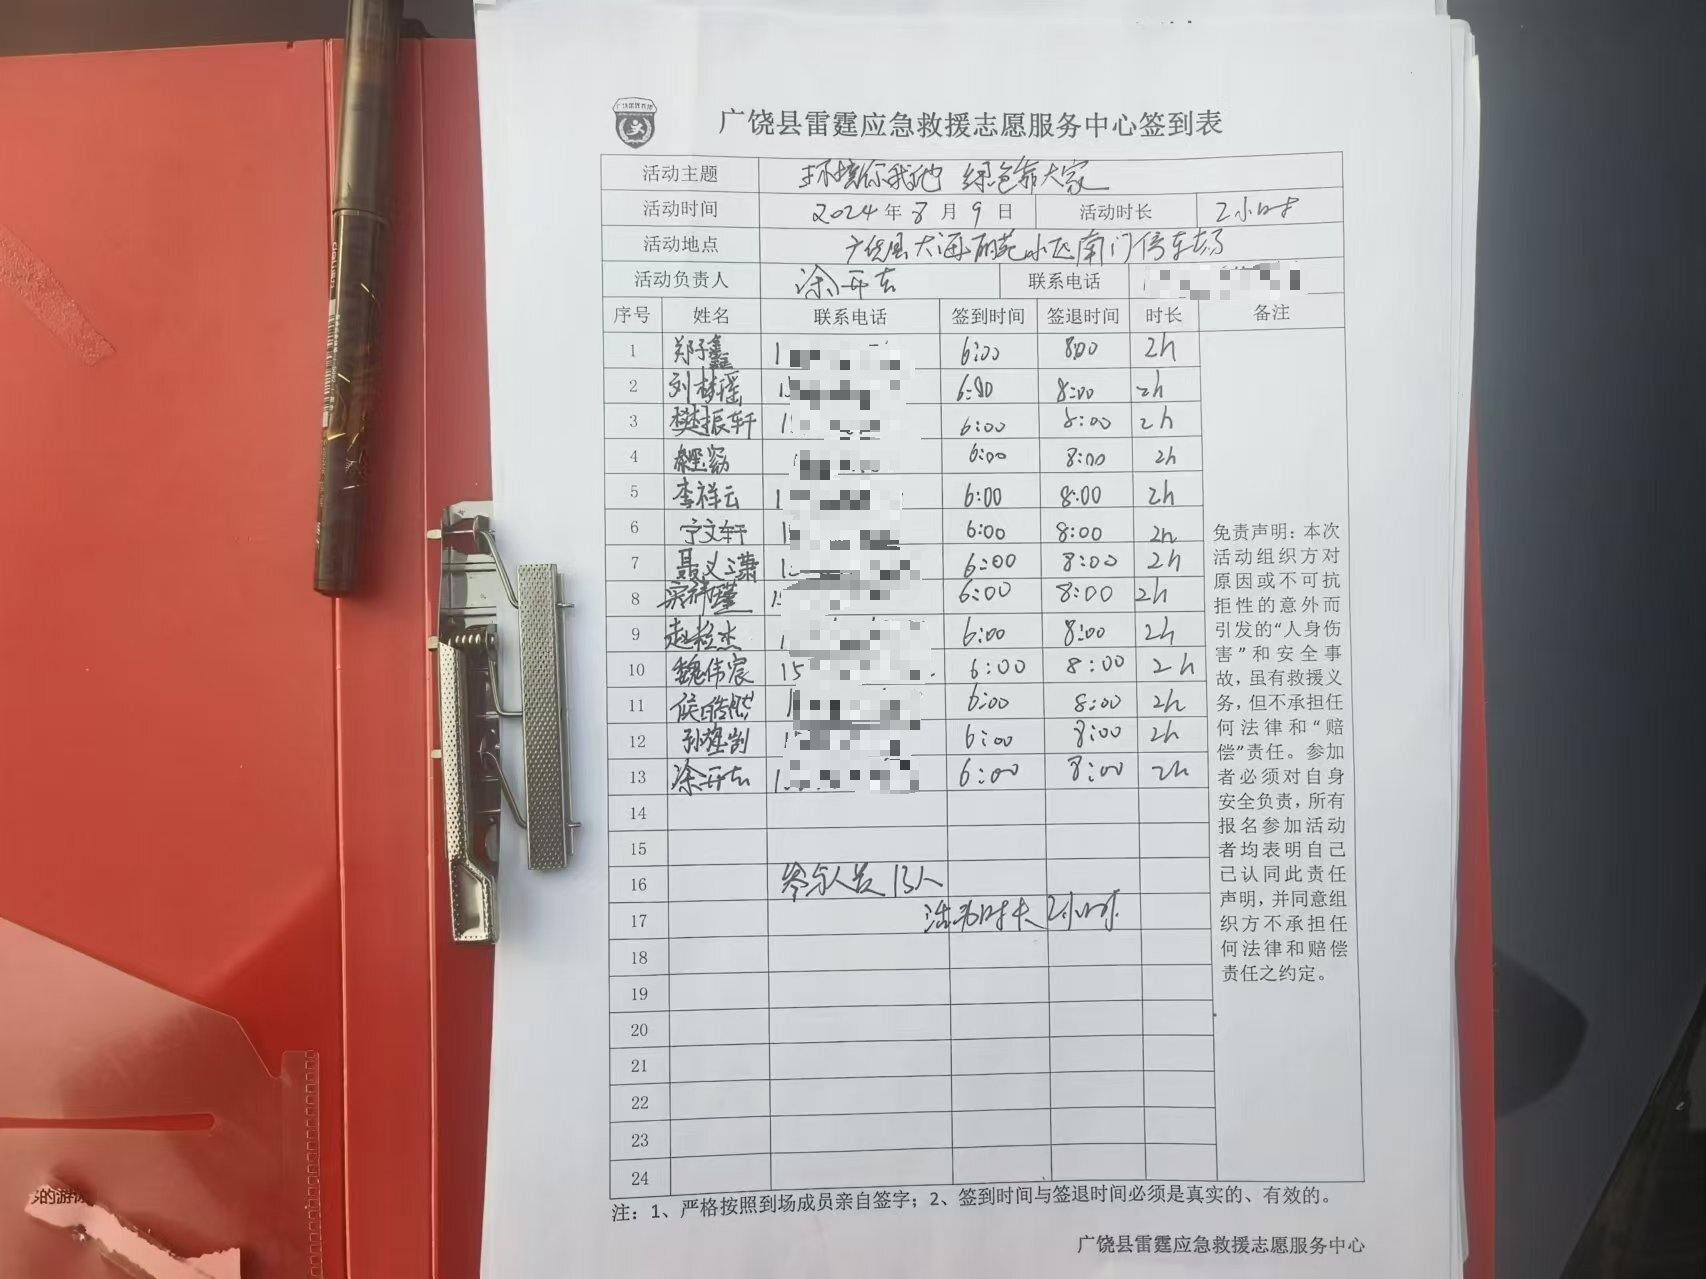 广饶县雷霆应急救援志愿服务中心签到表
活动主题 环境你我他 绿色靠大家
活动时间 2024年8月9日 活动时长 2小时
活动地点 广饶县大海丽苑小区南门停车场
活动负责人 涂开东 联系电话
序号 姓名 联系电话 签到时间 签退时间 时长 备注
1 郑子鑫 1 6:00 8:00 2h
2 刘梦瑶 15 6:00 8:00 2h
3 樊振轩 1 6:00 8:00 2h
4 6:00 8:00 2h
5 李祥云 1 6:00 8:00 2h
6 宁文轩 1 6:00 8:00 2h
7 聂义潇 1 6:00 8:00 2h
8 1 6:00 8:00 2h
9 赵裕杰 1 6:00 8:00 2h
10 魏伟宸 15 6:00 8:00 2h
11 侯皓然 1 6:00 8:00 2h
12 1 6:00 8:00 2h
13 涂开东 1 6:00 8:00 2h
14
15
16 参与人员13人
17 活动时长2小时
18
19
20
21
22
23
24
免责声明：本次
活动组织方对
原因或不可抗
拒性的意外而
引发的“人身伤
害”和安全事
故，虽有救援义
务，但不承担任
何法律和“赔
偿”责任。参加
者必须对自身
安全负责，所有
报名参加活动
者均表明自己
已认同此责任
声明，并同意组
织方不承担任
何法律和赔偿
责任之约定。
注：1、严格按照到场成员亲自签字；2、签到时间与签退时间必须是真实的、有效的。
广饶县雷霆应急救援志愿服务中心